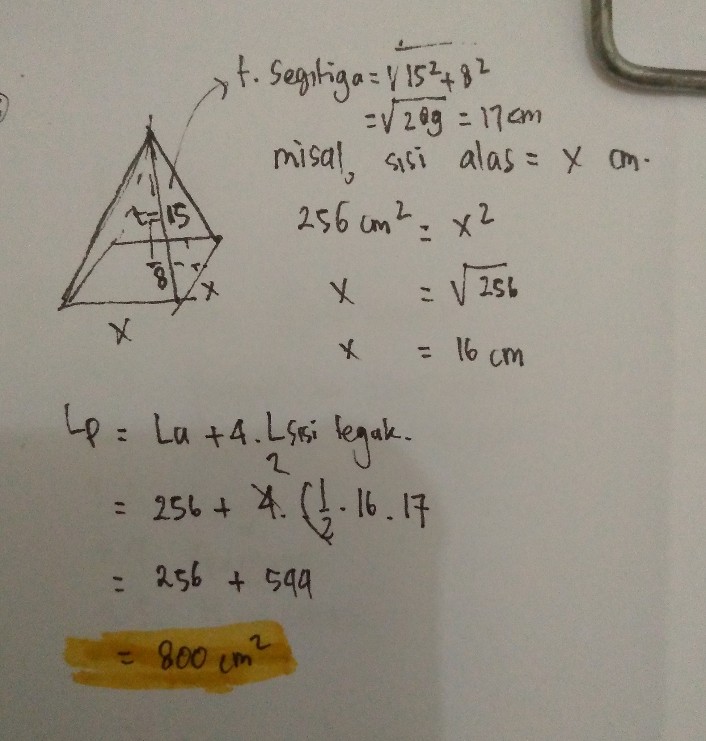 t. Segitiga = √15² + 8²
= √289 = 17 cm
misal, sisi alas = x cm.
t = 15
8
x
x
256 cm² = x²
x = √256
x = 16 cm
Lp = La + 4. L sisi tegak.
2
= 256 + 4. (1/2 . 16 . 17
= 256 + 544
= 800 cm²